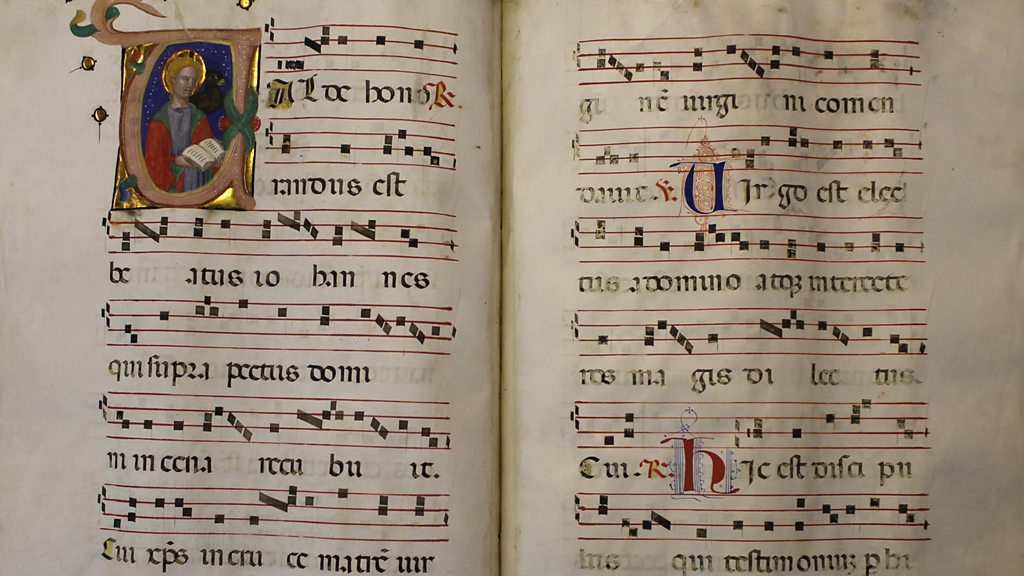 VAL de hono℟.
randus est
be atus io han nes
qui supra pectus domi
ni in cena recu bu it.
Cui xp̄s in cru ce matrē uir
gi nē uirgi ni comen
dauit. ℣. Uir go est elec
tus a domino atqȝ inter cete
ros ma gis di lec tus.
Cui. ℟. Hic est disci pu
lus qui testimonium p̱hi